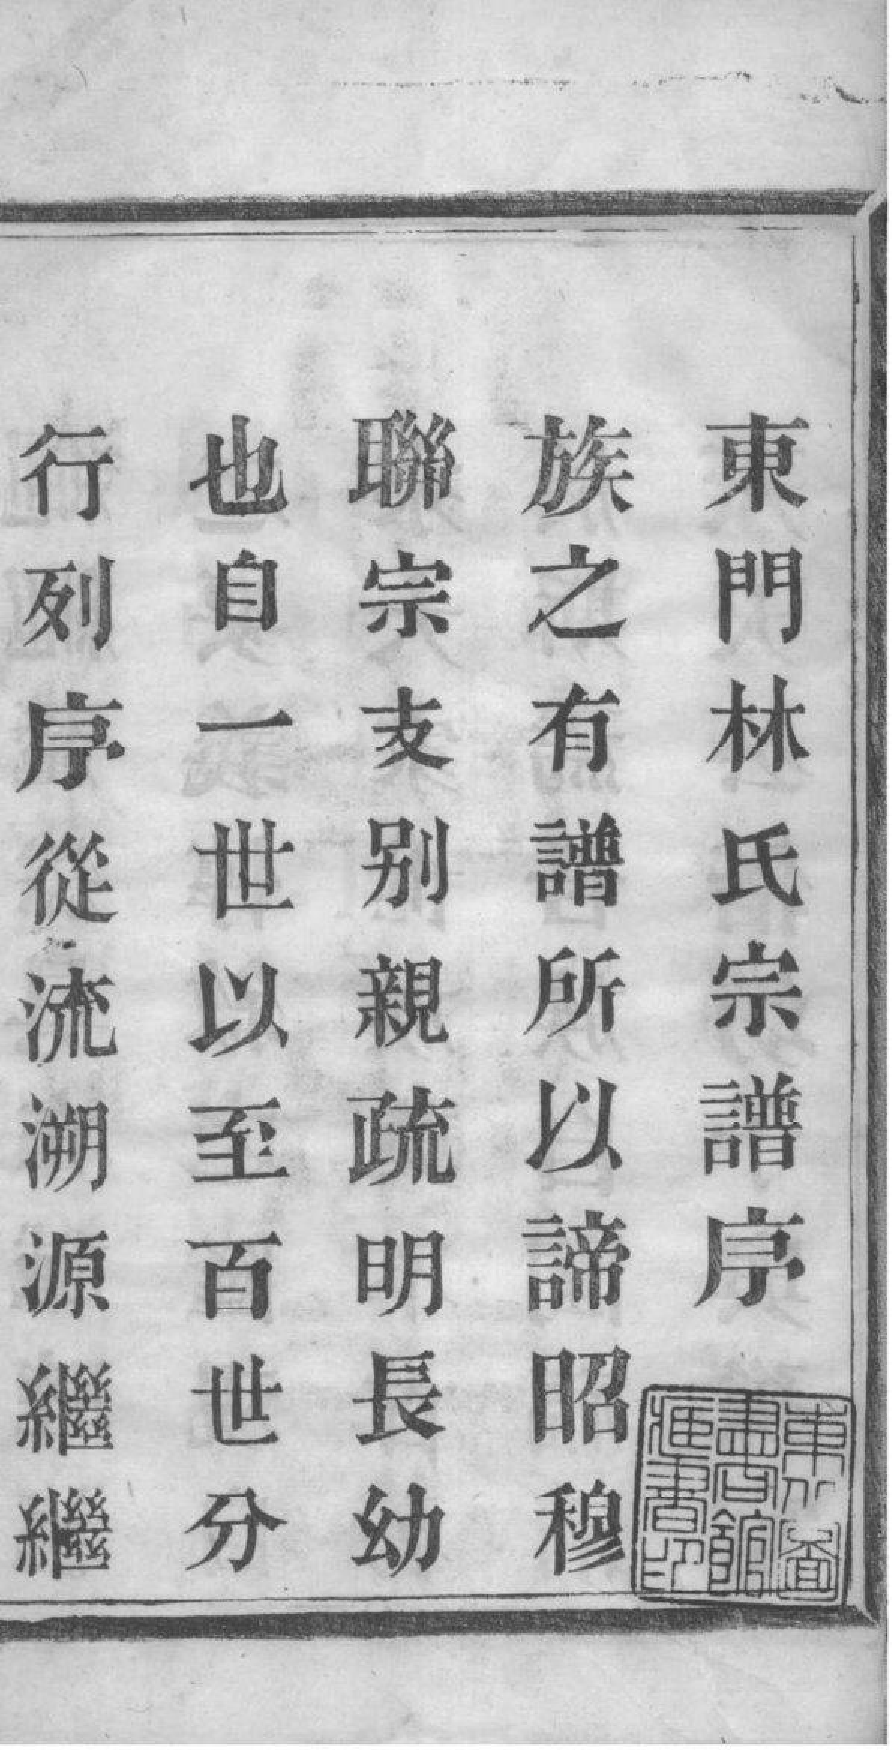 東門林氏宗譜序
族之有譜所以諦昭穆
聯宗支别親疏明長幼
也自一世以至百世分
行列序從流溯源繼繼